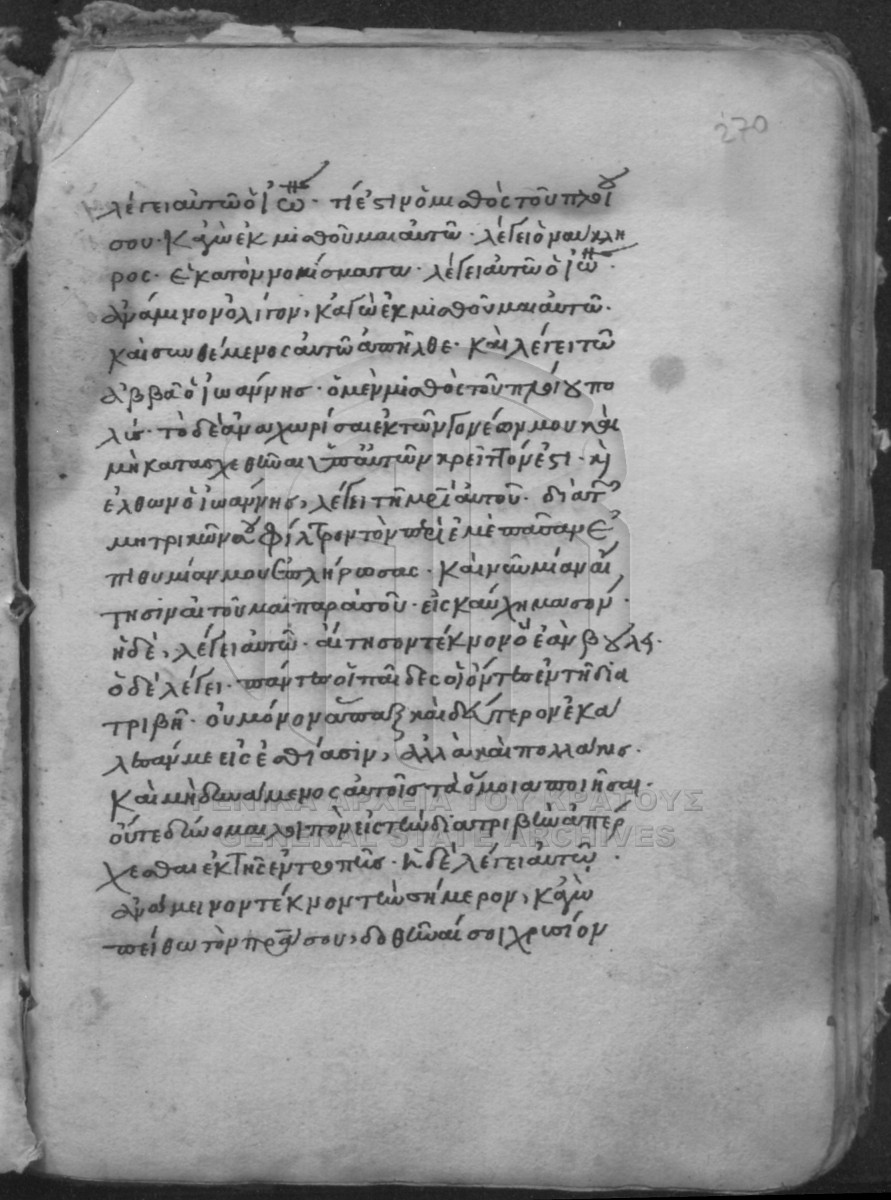 270
λέγει αὐτῶ ὁ ἰω · τί ἐστιν ὁ μισθὸς τοῦ πλοίου
σου · κἀγὼ ἐκμισθοῦμαι αὐτῶ · λέγει ὁ ναύκλη
ρος · ἑκατὸν νομίσματα · λέγει αὐτῶ ὁ ἰω ·
ἀνάμεινον ὀλίγον, κἀγὼ ἐκμισθοῦμαι αὐτῶ ·
καὶ συνθέμενος αὐτῶ ἀπῆλθε · καὶ λέγει τῶ
ἀββᾶ ὁ ἰωάννης · ὁ μὲν μισθὸς τοῦ πλοίου πο
λύς · τὸ δὲ ἀναχωρίσαι ἐκ τῶν γονέων μου καὶ
μὴ κατασχεθῆναι ὑπ' αὐτῶν κρεῖττόν ἐστι · καὶ
ἐλθὼν ὁ ἰωάννης, λέγει τῆ μρὶ αὐτοῦ · διὰ τὸ
μητρικὸν σου φίλτρον τὸ περὶ ἐμὲ πᾶσαν ἐ
πιθυμίαν μου ἐπλήρωσας · καὶ νῦν μίαν αἴ
τησιν αἰτοῦμαι παρὰ σοῦ · εἰς καύχημα σὸν ·
ἡ δὲ, λέγει αὐτῶ · αἴτησον τέκνον ὃ ἐὰν βούλη ·
ὁ δὲ λέγει · πάντες οἱ παῖδες οἱ ὄντες ἐν τῆ δια
τριβῆ · οὐ μόνον ἅπαξ καὶ δεύτερον ἐκά
λεσάν με εἰς ἑστίασιν, ἀλλὰ καὶ πολλάκις ·
καὶ μὴ δυνάμενος αὐτοῖς τὰ ὅμοια ποιῆσαι ·
οὔτε δύναμαι λοιπὸν εἰς τὴν διατριβὴν ἀπέρ
χεσθαι ἐκ τῆς ἐντροπῆς · ἡ δὲ λέγει αὐτῶ ·
ἀνάμεινον τέκνον τὴν σήμερον, κἀγὼ
πείθω τὸν πρα σου, δοθῆναί σοι χρυσίον
ΓΕΝΙΚΑ ΑΡΧΕΙΑ ΤΟΥ ΚΡΑΤΟΥΣ
GENERAL STATE ARCHIVES